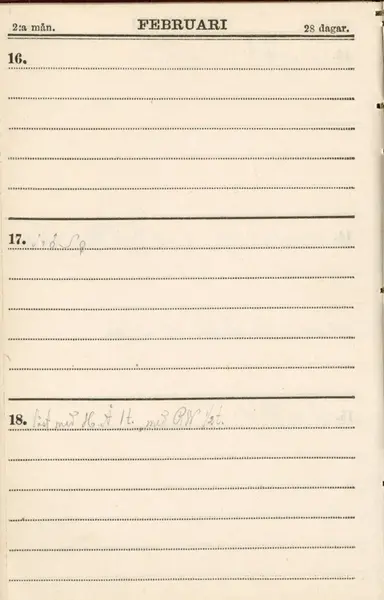 2:a mån. FEBRUARI 28 dagar.
16.
17.
18. med H. Å 1 t. med